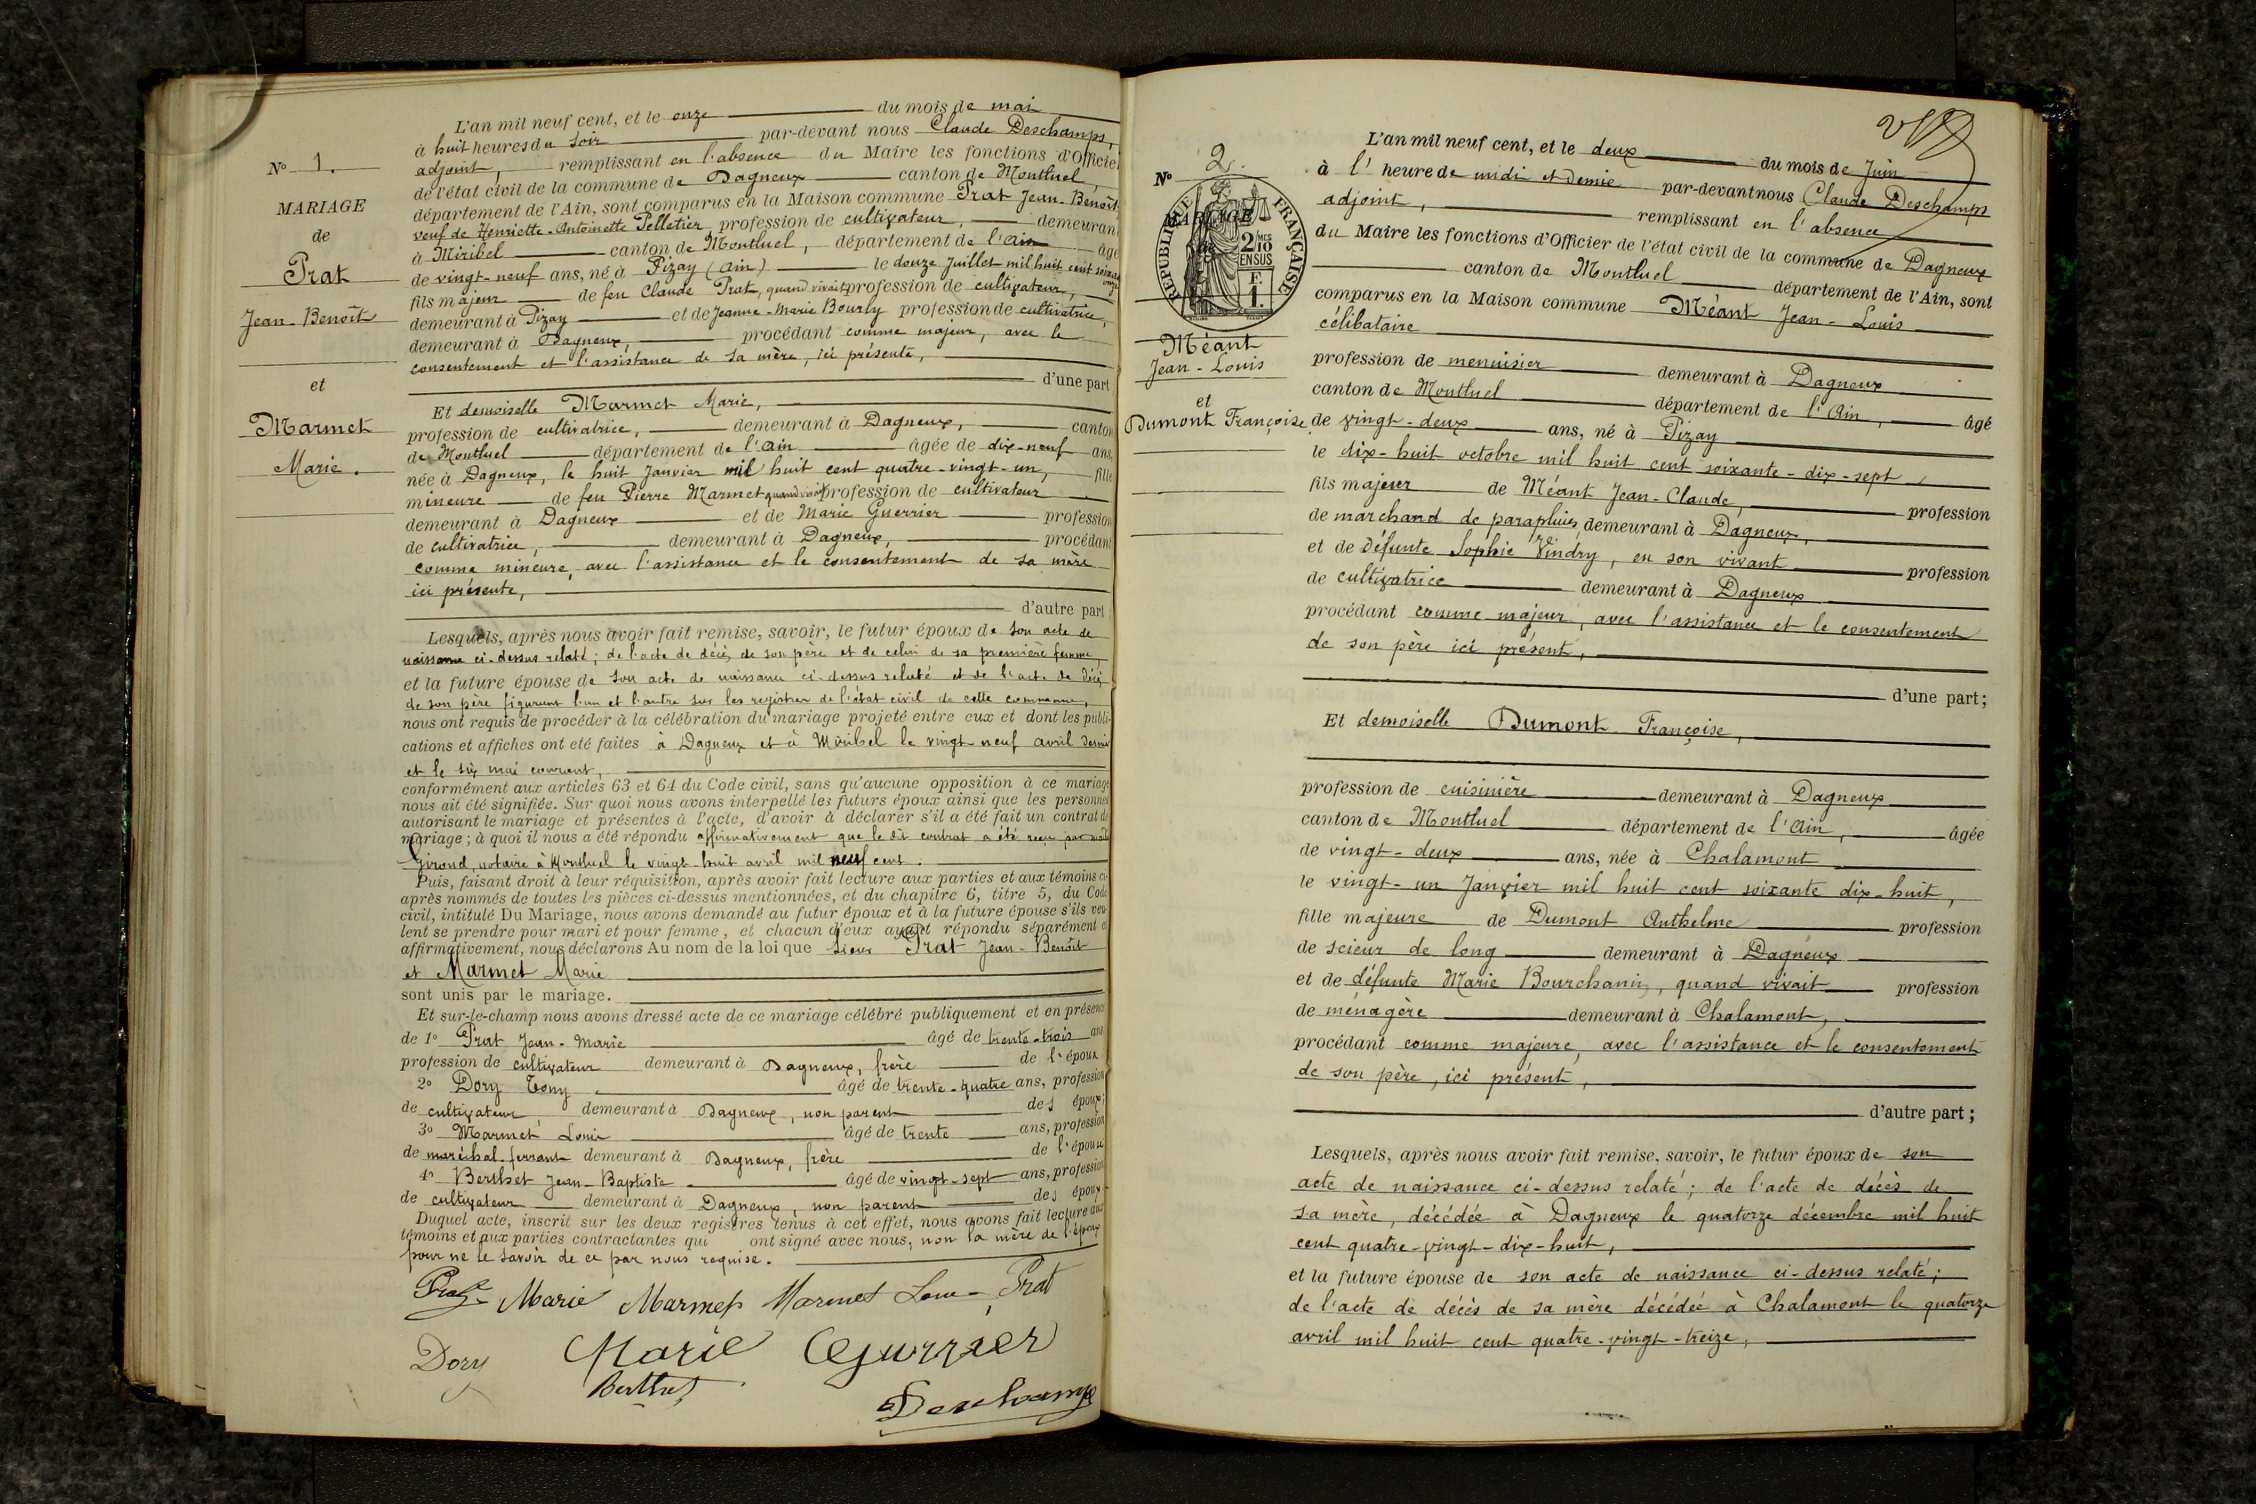 N° 1.
MARIAGE
de
Prat
Jean-Benoît
et
Marmet
Marie.
L'an mil neuf cent, et le onze du mois de mai
à huit heures du soir par-devant nous Claude Deschamps,
adjoint, remplissant en l'absence du Maire les fonctions d'Officier
de l'état civil de la commune de Dagneux canton de Montluel,
département de l'Ain, sont comparus en la Maison commune Prat Jean-Benoît
veuf de Henriette-Antoinette Pelletier profession de cultivateur, demeurant
à Miribel canton de Montluel, département de l'Ain âgé
de vingt-neuf ans, né à Pizay (Ain) le douze Juillet mil huit cent soixante
fils majeur de feu Claude Prat, quand vivait profession de cultivateur,
demeurant à Pizay et de Jeanne-Marie Bourly profession de cultivatrice,
demeurant à Dagneux, procédant comme majeur, avec le
consentement et l'assistance de sa mère, ici présente,
d'une part
Et demoiselle Marmet Marie,
profession de cultivatrice, demeurant à Dagneux, canton
de Montluel département de l'Ain âgée de dix-neuf ans,
née à Dagneux, le huit Janvier mil huit cent quatre-vingt-un, fille
mineure de feu Pierre Marmet quand vivait profession de cultivateur
demeurant à Dagneux et de Marie Guerrier profession
de cultivatrice, demeurant à Dagneux, procédant
comme mineure, avec l'assistance et le consentement de sa mère
ici présente,
d'autre part
Lesquels, après nous avoir fait remise, savoir, le futur époux de son acte de
naissance ci-dessus relaté; de l'acte de décès de son père et de celui de sa première femme,
et la future épouse de son acte de naissance ci-dessus relaté et de l'acte de décès
de son père figurant l'un et l'autre sur les registres de l'état civil de cette commune,
nous ont requis de procéder à la célébration du mariage projeté entre eux et dont les publi-
cations et affiches ont été faites à Dagneux et à Miribel le vingt neuf avril dernier
et le six mai courant,
conformément aux articles 63 et 64 du Code civil, sans qu'aucune opposition à ce mariage
nous ait été signifiée. Sur quoi nous avons interpellé les futurs époux ainsi que les personnes
autorisant le mariage et présentes à l'acte, d'avoir à déclarer s'il a été fait un contrat de
mariage; à quoi il nous a été répondu affirmativement que le dit contrat a été reçu par
Girond, notaire à Montluel le vingt-huit avril mil neuf cent.
Puis, faisant droit à leur réquisition, après avoir fait lecture aux parties et aux témoins ci-
après nommés de toutes les pièces ci-dessus mentionnées, et du chapitre 6, titre 5, du Code
civil, intitulé Du Mariage, nous avons demandé au futur époux et à la future épouse s'ils veu-
lent se prendre pour mari et pour femme, et chacun d'eux ayant répondu séparément et
affirmativement, nous déclarons Au nom de la loi que sieur Prat Jean-Benoît
et Marmet Marie
sont unis par le mariage.
Et sur-le-champ nous avons dressé acte de ce mariage célébré publiquement et en présence
de 1° Prat Jean-Marie âgé de trente-trois ans
profession de cultivateur demeurant à Dagneux, frère de l'époux
2° Dory Tony âgé de trente-quatre ans, profession
de cultivateur demeurant à Dagneux, non parent des époux;
3° Marmet Louis âgé de trente ans, profession
de maréchal-ferrant demeurant à Dagneux, frère de l'épouse
4° Berthet Jean-Baptiste âgé de vingt-sept ans, profession
de cultivateur demeurant à Dagneux, non parent des époux
Duquel acte, inscrit sur les deux registres tenus à cet effet, nous avons fait lecture aux
témoins et aux parties contractantes qui ont signé avec nous, non la mère de l'époux
pour ne le savoir de ce par nous requise.
Prat Marie Marmet Marmet Louis Prat
Dory Marie Gurrier
Berthet
Deschamps
N° 2.
MARIAGE
RÉPUBLIQUE FRANÇAISE
2/10 MES
EN SUS
F.
1
Méant
Jean-Louis
et
Dumont Françoise
L'an mil neuf cent, et le deux du mois de Juin
à l'heure de midi et demie par-devant nous Claude Deschamps
adjoint, remplissant en l'absence
du Maire les fonctions d'Officier de l'état civil de la commune de Dagneux
canton de Montluel département de l'Ain, sont
comparus en la Maison commune Méant Jean-Louis
célibataire
profession de menuisier demeurant à Dagneux
canton de Montluel département de l'Ain, âgé
de vingt-deux ans, né à Pizay
le dix-huit octobre mil huit cent soixante-dix-sept,
fils majeur de Méant Jean-Claude, profession
de marchand de parapluies demeurant à Dagneux,
et de défunte Sophie Vindry, en son vivant profession
de cultivatrice demeurant à Dagneux
procédant comme majeur, avec l'assistance et le consentement
de son père ici présent,
d'une part;
Et demoiselle Dumont Françoise,
profession de cuisinière demeurant à Dagneux
canton de Montluel département de l'Ain, âgée
de vingt-deux ans, née à Chalamont
le vingt-un Janvier mil huit cent soixante dix-huit,
fille majeure de Dumont Anthelme profession
de scieur de long demeurant à Dagneux
et de défunte Marie Bourchanin, quand vivait profession
de ménagère demeurant à Chalamont,
procédant comme majeure, avec l'assistance et le consentement
de son père, ici présent,
d'autre part;
Lesquels, après nous avoir fait remise, savoir, le futur époux de son
acte de naissance ci-dessus relaté; de l'acte de décès de
sa mère, décédée à Dagneux le quatorze décembre mil huit
cent quatre-vingt-dix-huit,
et la future épouse de son acte de naissance ci-dessus relaté;
de l'acte de décès de sa mère décédée à Chalamont le quatorze
avril mil huit cent quatre-vingt-treize,